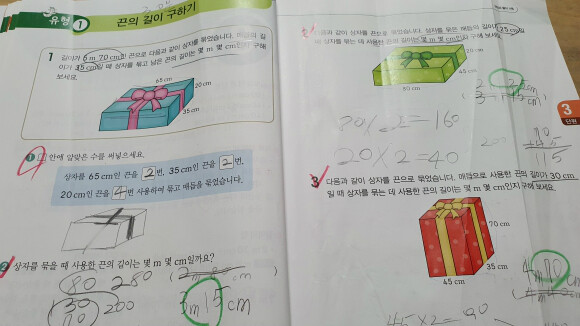 유형 1 끈의 길이 구하기
1 길이가 6 m 70 cm인 끈으로 다음과 같이 상자를 묶었습니다. 매듭의 길
이가 35 cm일 때 상자를 묶고 남은 끈의 길이는 몇 m 몇 cm인지 구해
보세요.
65 cm
20 cm
35 cm
1 □ 안에 알맞은 수를 써넣으세요.
상자를 65 cm인 끈을 2번, 35 cm인 끈을 2번,
20 cm인 끈을 4번 사용하여 묶고 매듭을 묶었습니다.
2 상자를 묶을 때 사용한 끈의 길이는 몇 m 몇 cm일까요?
80 280
130
70 200
3m15cm
다음과 같이 상자를 끈으로 묶었습니다. 상자를 묶은 매듭의 길이가 25 cm일
때 상자를 묶는 데 사용한 끈의 길이는 몇 m 몇 cm인지 구해 보세요.
20 cm
80 cm
80×2=160
20×2=40
115
3
단원
3 다음과 같이 상자를 끈으로 묶었습니다. 매듭으로 사용한 끈의 길이가 30 cm
일 때 상자를 묶는 데 사용한 끈의 길이는 몇 m 몇 cm인지 구해 보세요.
70 cm
35 cm
45 cm
45×2=90